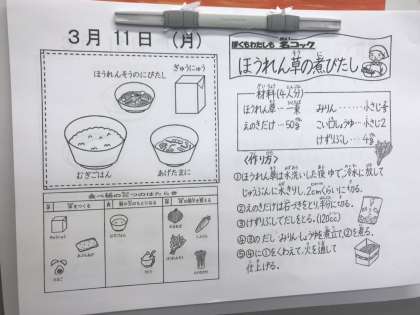 3月 11日 (月)
ぎゅうにゅう
ほうれんそうのにびたし
むぎごはん
あげたまに
食べ物の三つのはたらき
ぼくもわたしも 名コック
ほうれん草の煮びたし
材料(4人分)
ほうれん草‥一束
えのきだけ‥50g
みりん‥‥‥小さじ
こいくちしょうゆ‥小さじ2
けずりぶし‥‥4g
〈作り方〉
①ほうれん草は水洗いした後ゆで、冷水に放して
じゅうぶんに水きりし、2cmくらいに切る。
②えのきだけは石づきをとり、半分に切る。
③けずりぶしでだしをとる。(120cc)
④③のだし みりん・しょうゆを煮立て、②を煮る。
⑤④に①をくわえて、火を通して
仕上げる。